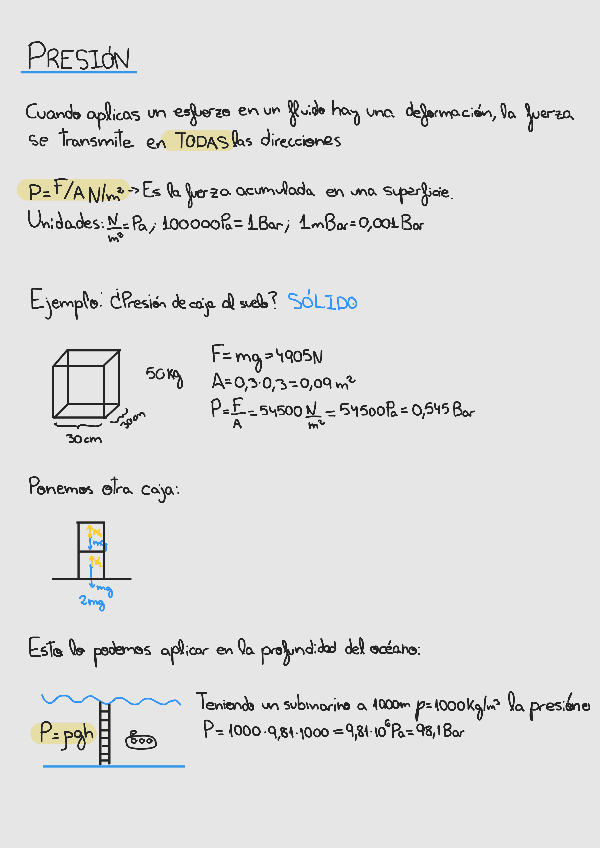 PRESIÓN
Cuando aplicas un esfuerzo en un fluido hay una deformación, la fuerza
se transmite en TODAS las direcciones
P=F/A N/m² -> Es la fuerza acumulada en una superficie.
Unidades: N/m² = Pa; 100000Pa = 1Bar; 1mBar = 0,001Bar
Ejemplo: ¿Presión de caja al suelo? SÓLIDO
50Kg
30cm
30cm
F = mg = 4905N
A = 0,3·0,3 = 0,09 m²
P = F/A = 54500 N/m² = 54500Pa = 0,545 Bar
Ponemos otra caja:
N
mg
N
mg
2mg
Esto lo podemos aplicar en la profundidad del océano:
P = ρgh
Teniendo un submarino a 1000m ρ=1000Kg/m³ la presión
P = 1000·9,81·1000 = 9,81·10⁶Pa = 98,1Bar